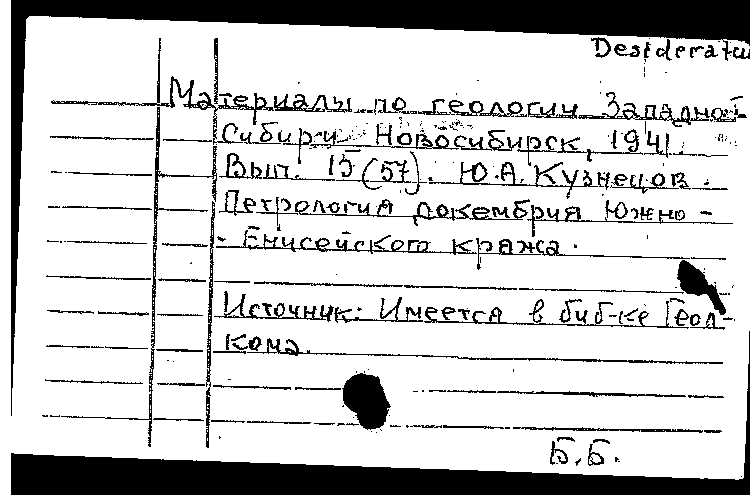 Desiderata
Материалы по геологии Западной
Сибири Новосибирск, 1941.
Вып. 15 (57). Ю.А. Кузнецов.
Петрология докембрия Южно-
- Енисейского кряжа.
Источник: Имеется в биб-ке Геол-
кома.
Б.Б.